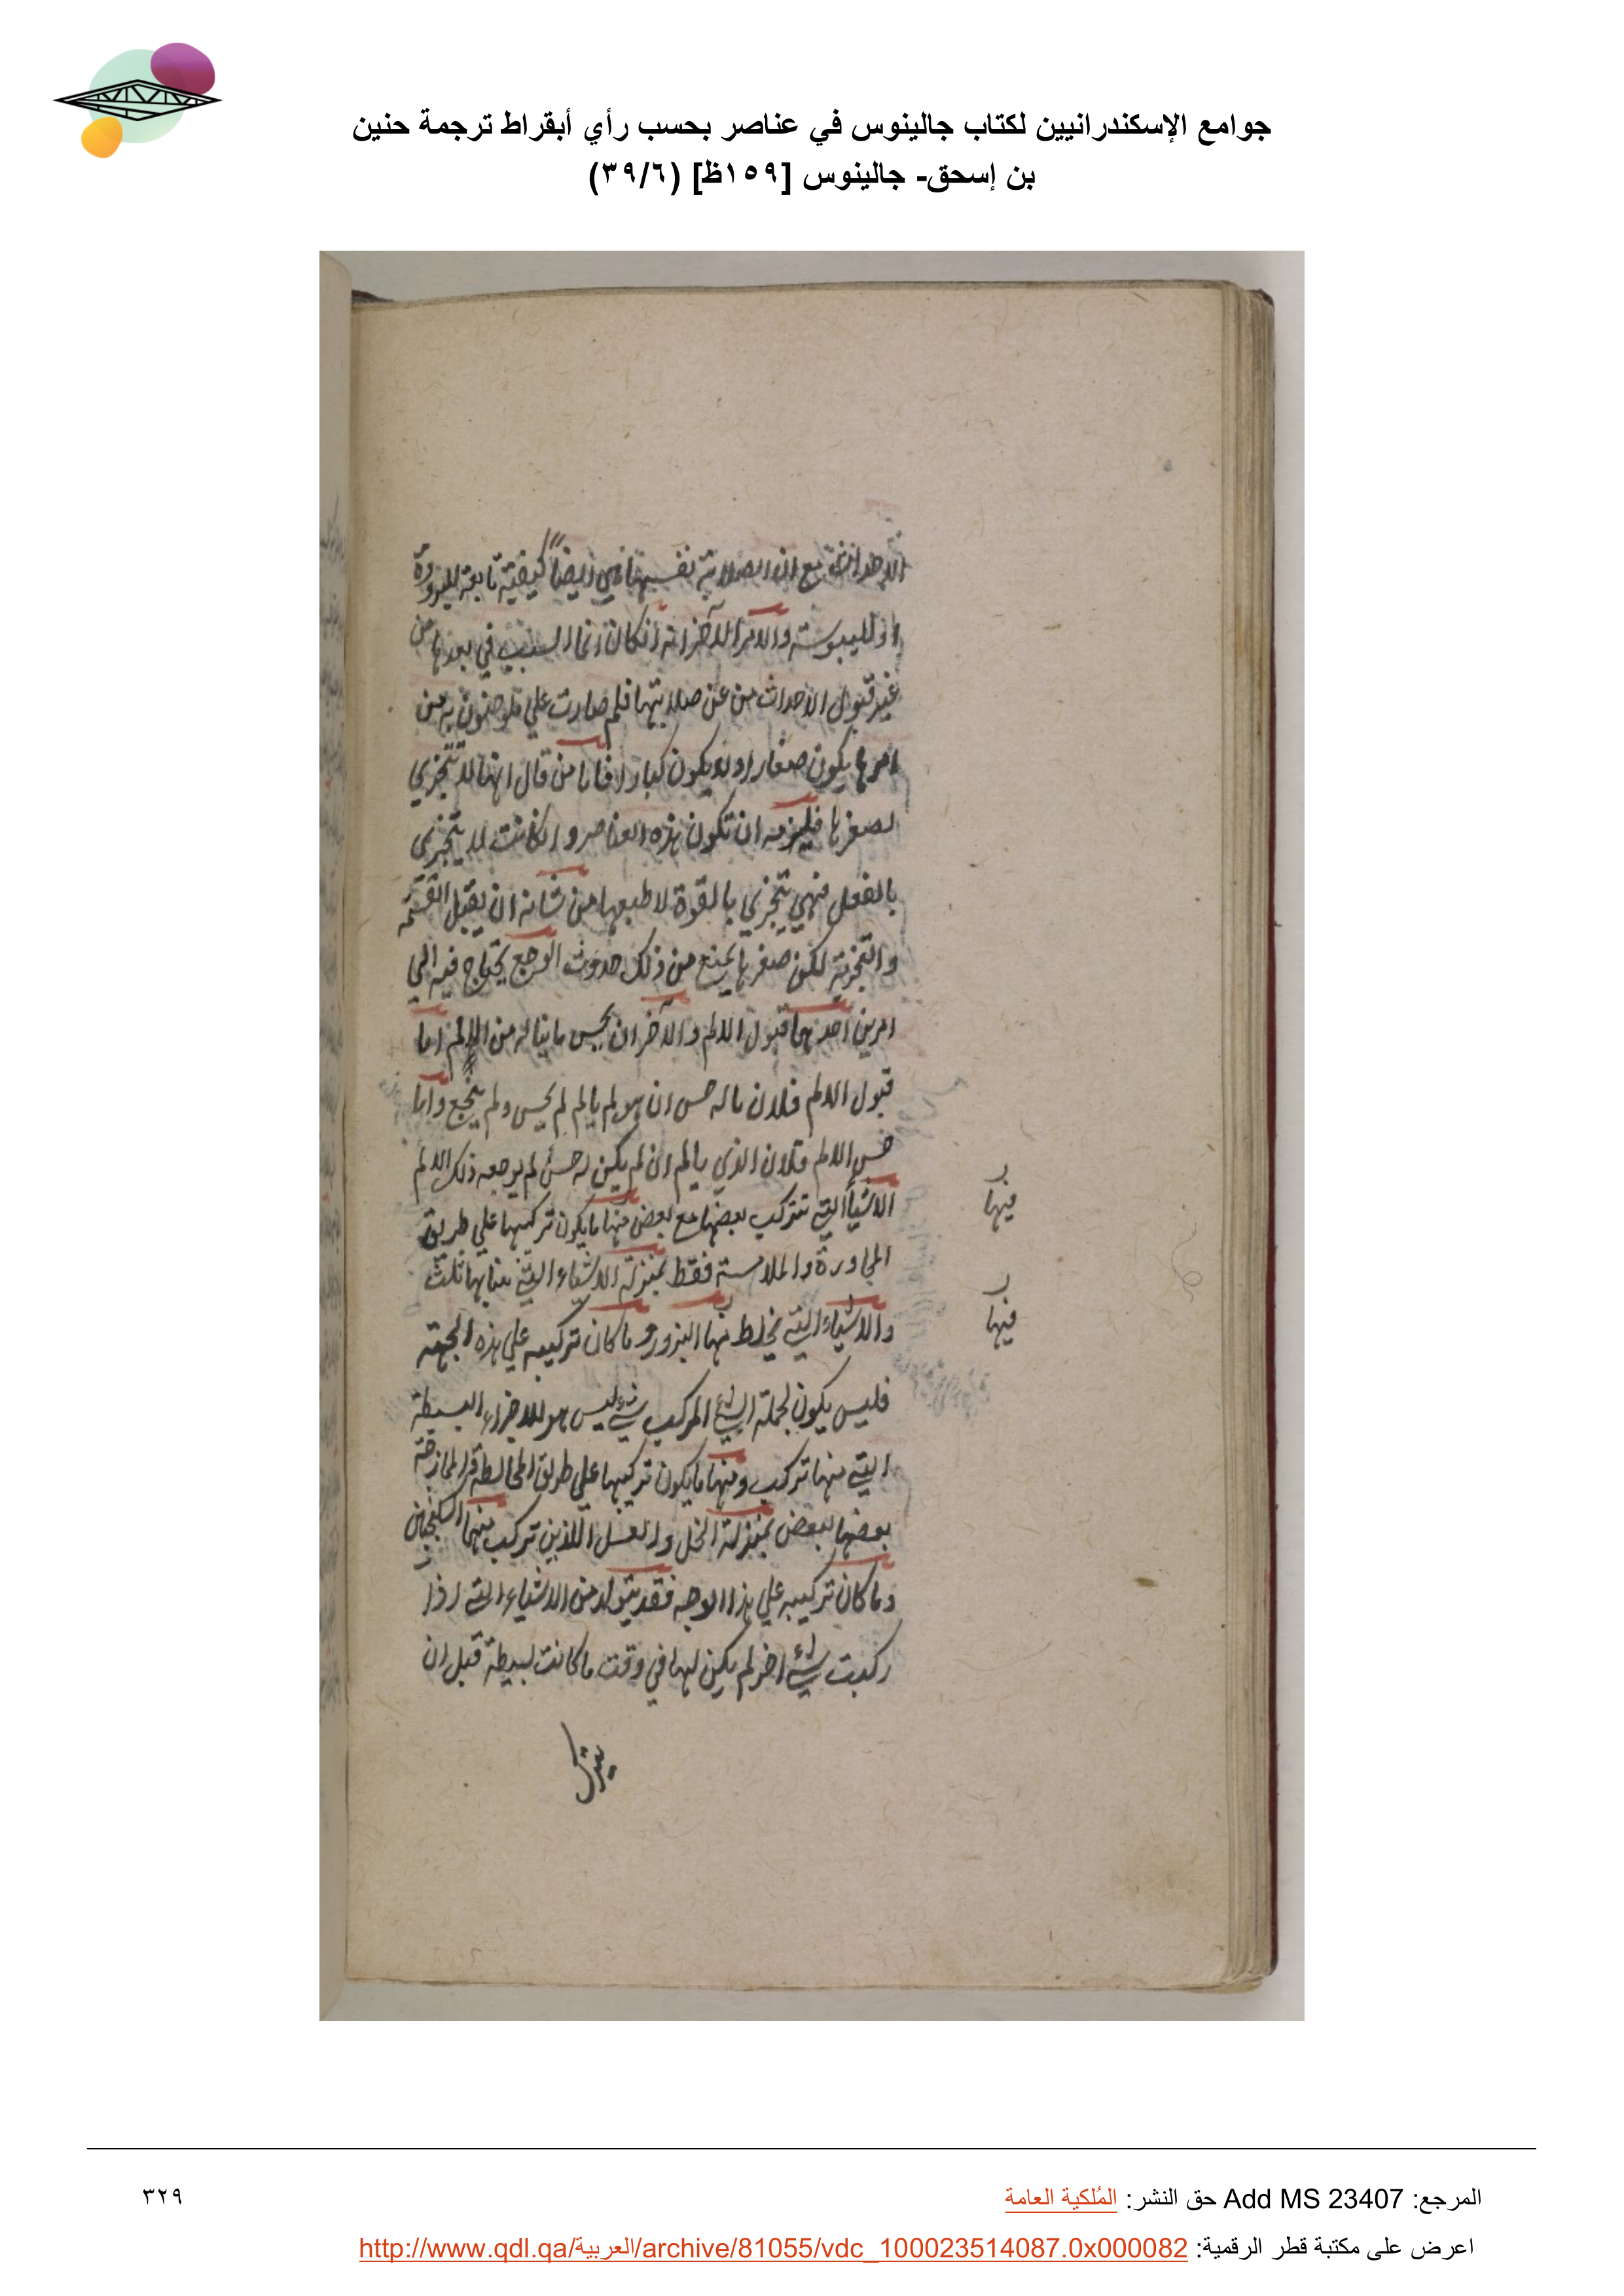 جوامع الإسكندرانيين لكتاب جالينوس في عناصر بحسب رأي أبقراط ترجمة حنين
بن إسحق- جالينوس [١٥٩ظ] (٣٩/٦)
الاحداث مع ان الصلابة نفسها هي ايضاً كيفية تابعة للبرودة
او لليبوسة والامر الآخر انه ان كان انما السبب في بعدها من
غير قبول الاحداث من عن صلابتها فلم صارت علي يضعون به من
امرها يكون صغارا ولا يكون كبارا فاما من قال انها لا تتجزي
لصغرها فيلزمه ان تكون هذه العناصر وان كانت لا يتجزي
بالفعل فهي تتجزي بالقوة لا طبعها من شانه ان يقبل القسمة
والتجزية لكن صغرها يمنع من ذلك حدوث الوجع يحتاج فيه الي
امرين احدهما قبول الالم والآخر ان يحس ما يناله من الالم اما
قبول الالم فلان ما له حس ان هو لم يالم لم يحس ولم يتجع واما
حس الالم فلان الذي يالم ان لم يكن له حس لم يوجعه ذلك الالم
الاشيأ التي تتركب بعضها مع بعض منها ما يكون تركيبها علي طريق
المجاورة والملامسة فقط بمنزلة الاشياء التي
والاشياء التي يخلط منها البزور وما كان تركيبه علي هذه الجهة
فليس يكون لجملة الشئ المركب شئ ليس هو للاجزاء البسيطة
التي منها تركب ومنها ما يكون تركيبها علي طريق المخالطة والممازجة
بعضها لبعض بمنزلة الخل والعسل اللذين تركب منها السكنجبين
وما كان تركيبه علي هذا الوجه فقد يتولد من الاشياء التي اذا
ركبت شئ اخر لم يكن لها في وقت ما كانت بسيطة قبل ان
فيها
فيها
المرجع: Add MS 23407 حق النشر: المُلكية العامة
٣٢٩
اعرض على مكتبة قطر الرقمية: http://www.qdl.qa/العربية/archive/81055/vdc_100023514087.0x000082